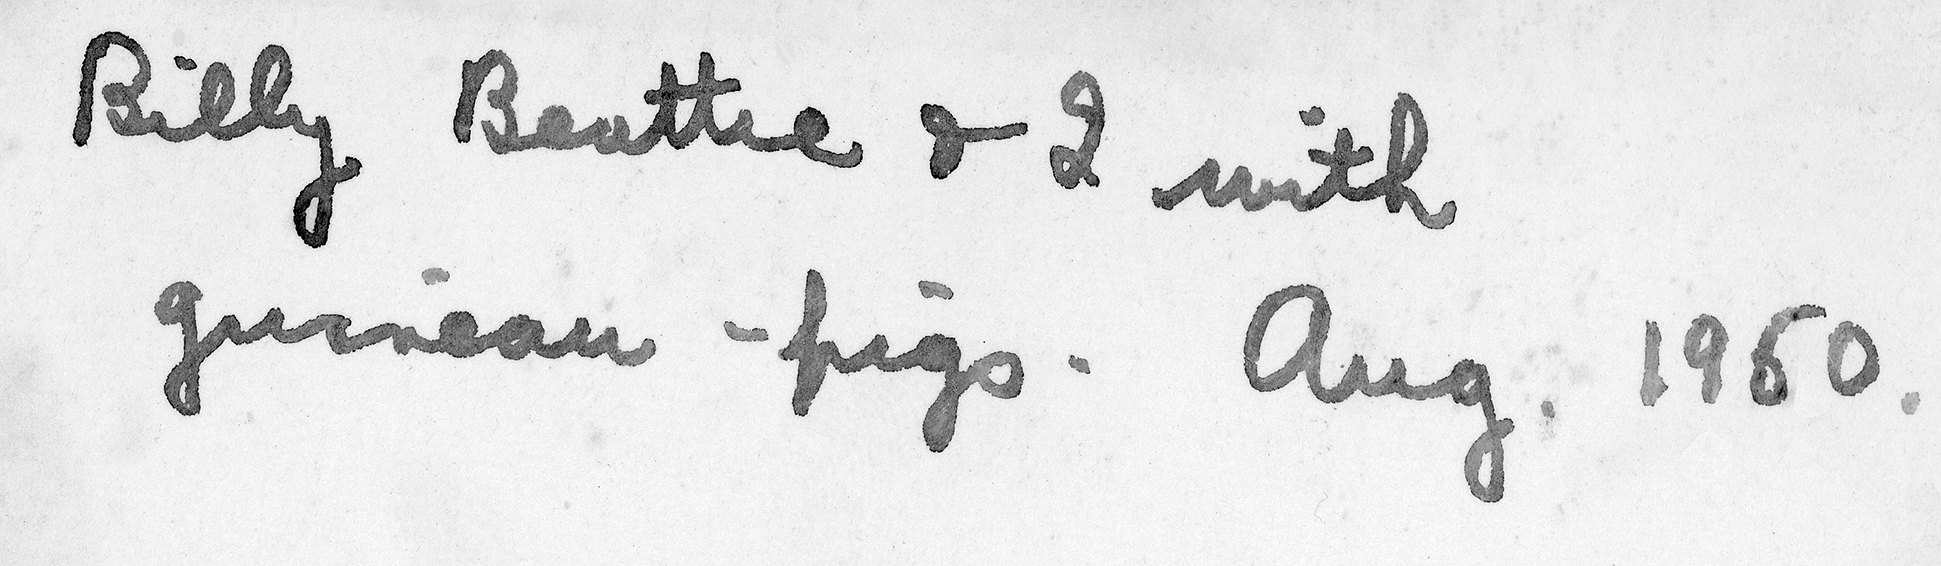 Billy Beattie & I with
guineau - pigs. Aug. 1950.